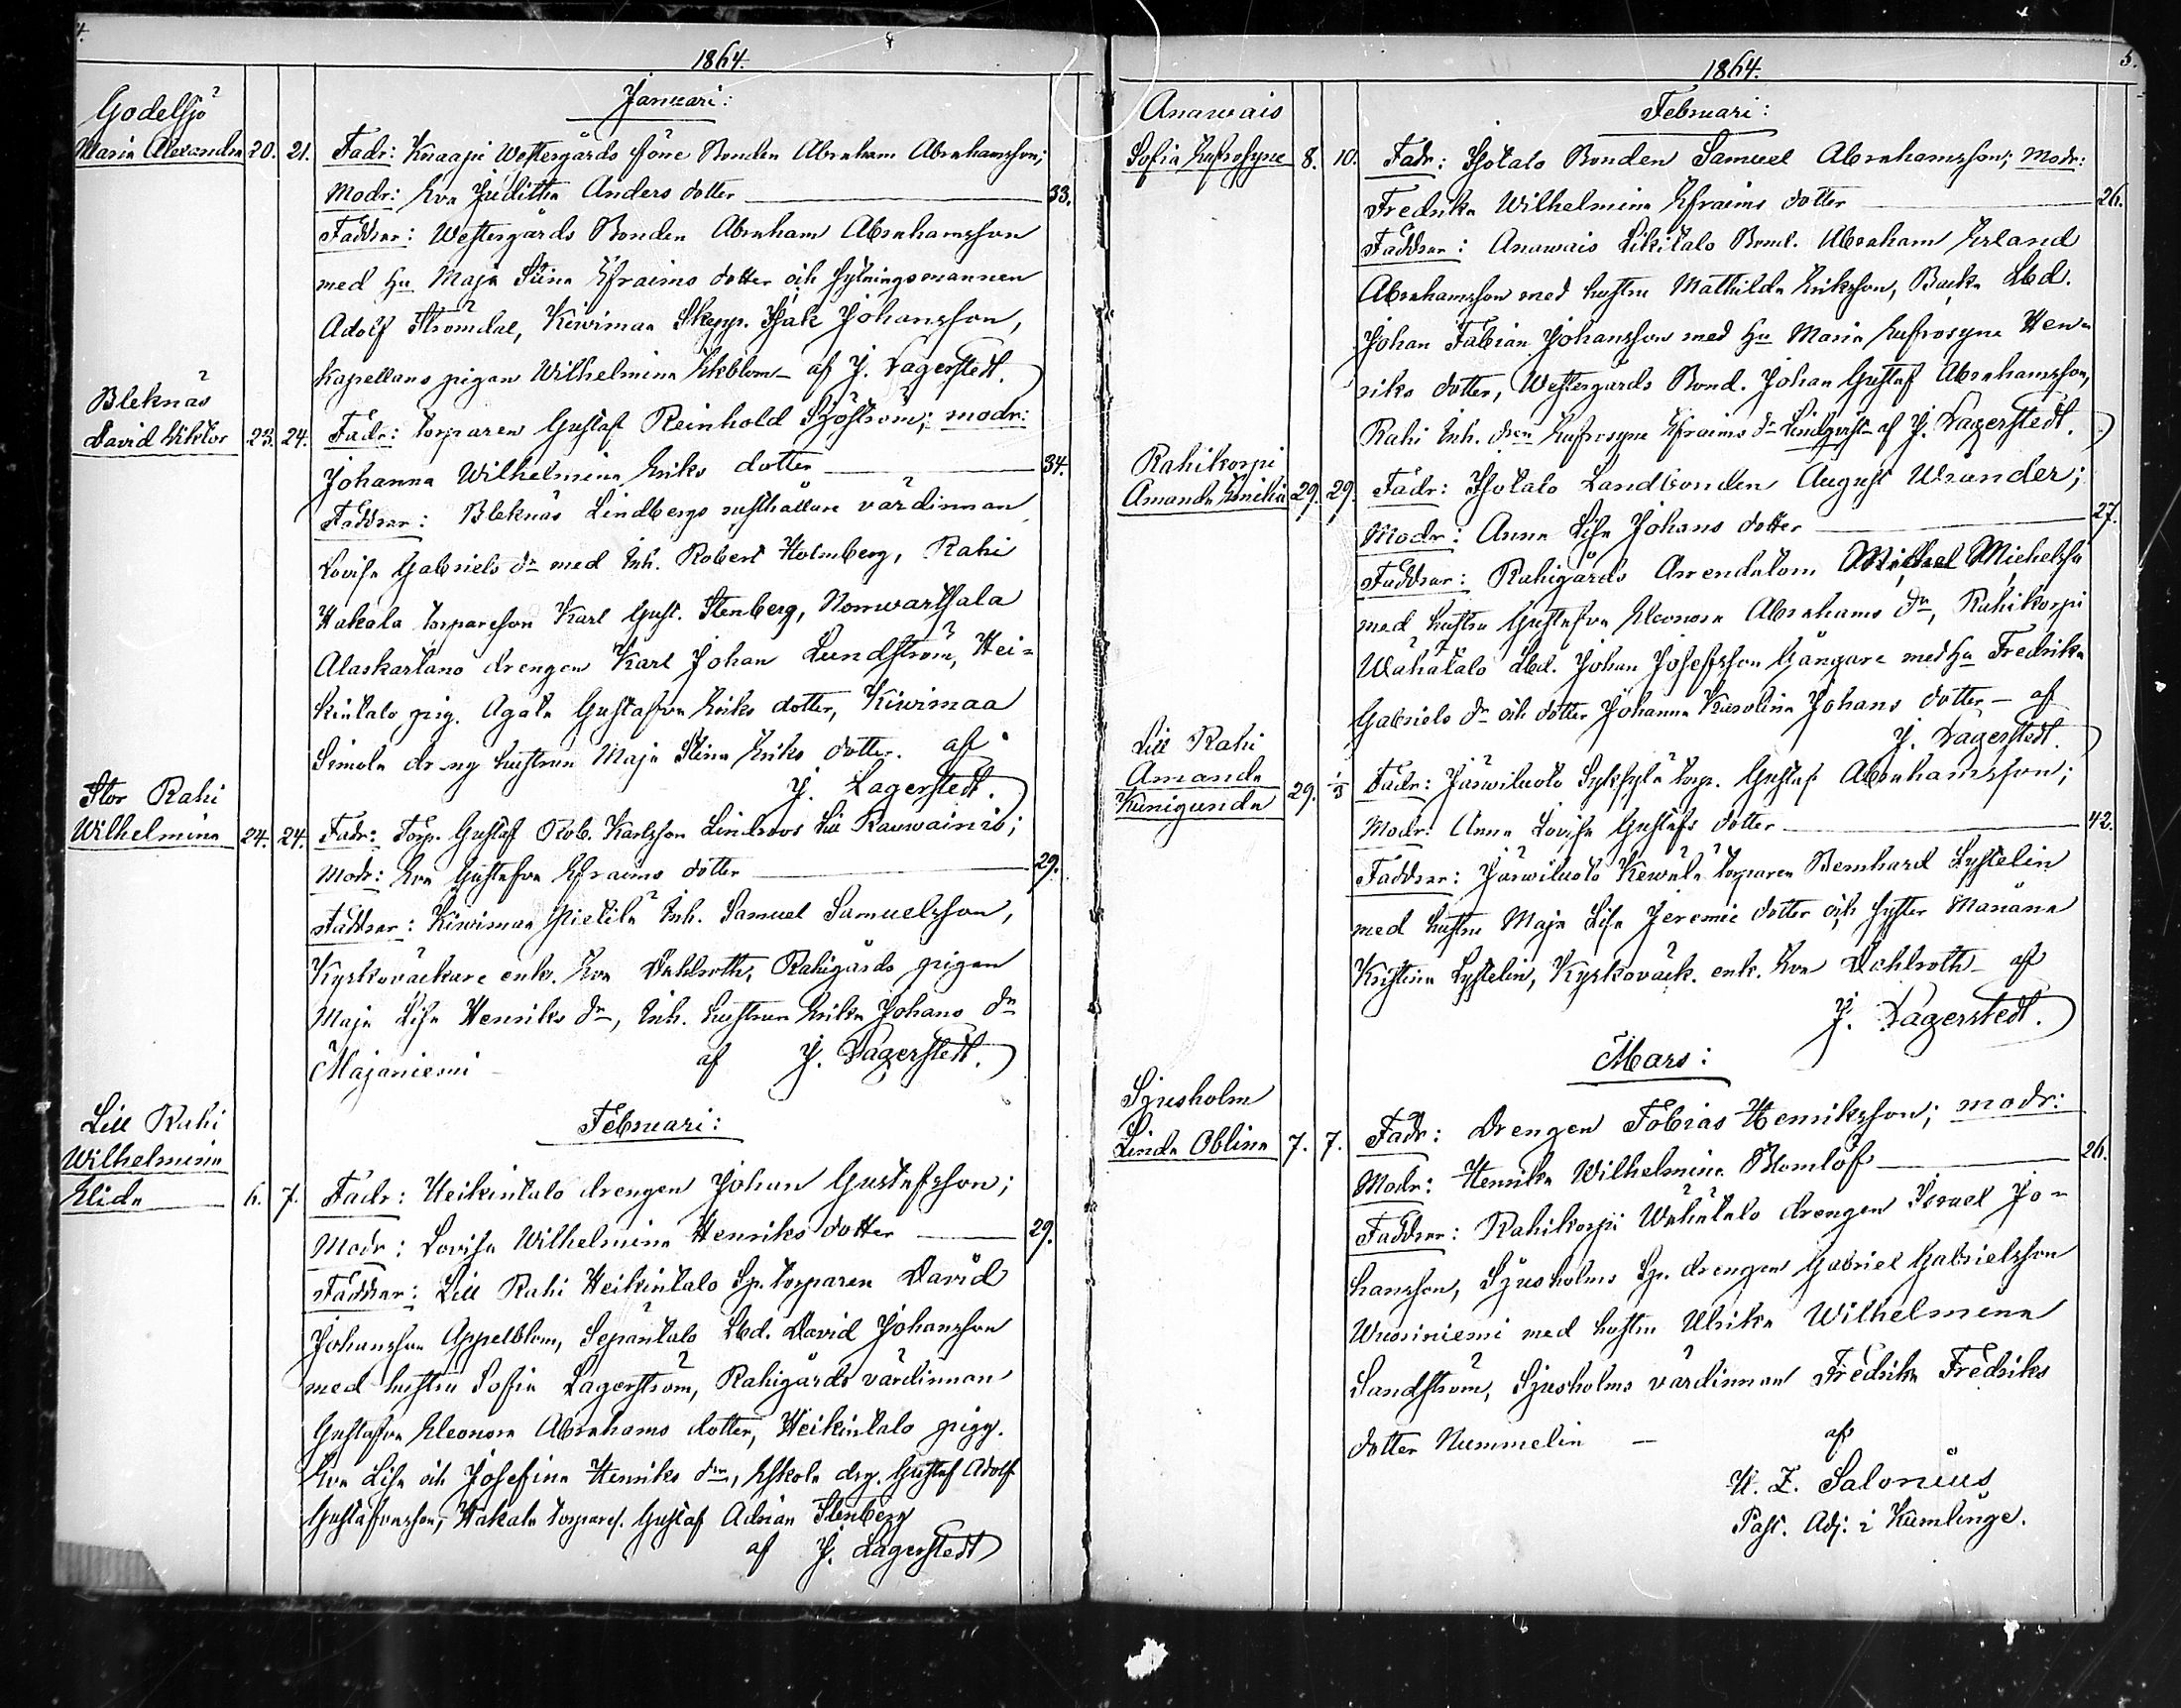 4.
1864.
Januari:
Godelsjö
Maria Alexandra 20. 21. Fadr: Knaapi Westergårds sone Bonden Abraham Abrahamsson;
Modr: Eva Juditha Anders dotter — 33.
Faddrar: Westergårds Bonden Abraham Abrahamsson
med Hu Maja Stina Efraims dotter och sytningsmannen
Adolf Strömdal, Kiwimaa Skepp. Isak Johansson,
Kapellans pigan Wilhelmina Ekblom – af J. Lagerstedt.
Bleknäs
David Viktor 23. 24. Fadr: torparen Gustaf Reinhold Sjöström; modr:
Johanna Wilhelmina Eriks dotter — 34.
Faddrar: Bleknäs Lindbergs rusthållare värdinnan
Lovisa Gabriels dr med Inh. Robert Holmberg, Rahi
Hakala torpareson Karl Gust. Stenberg, Nonwarthala
Alaskartano drengen Karl Johan Lundström, Hei-
kintalo pig. Agata Gustafva Eriks dotter, Kiwimaa
Simola dreng hustrun Maja Stina Eriks dotter. af
J. Lagerstedt.
Stor Rahi
Wilhelmina 24. 24. Fadr: Torp. Gustaf Rob. Karlsson Lindroos Lill Rauwainio;
Modr: Eva Gustafva Efraims dotter — 29.
Faddrar: Kiwimaa Pietilä Inh. Samuel Samuelsson,
Kyrkoväckare enk. Eva Dahlroth, Rahigårds pigan
Maja Lisa Henriks dr, Inh. hustrun Erika Johans dr
Majaniemi af J. Lagerstedt.
Februari:
Lill Rahi
Wilhelmina
Elida — 6. 7. Fadr: Heikintalo drengen Johan Gustafsson;
Modr: Lovisa Wilhelmina Henriks dotter — 29.
Faddrar: Lill Rahi Heikintalo Sp. torparen David
Johansson Appelblom, Sepäntalo Lbd. David Johansson
med hustru Sofia Lagerström, Rahigårds värdinnan
Gustafva Eleonora Abrahams dotter, Heikintalo pigg.
Eva Lisa och Josefina Henriks drr, Eskola drg. Gustaf Adolf
Gustafvasson, Hakala torpares. Gustaf Adrian Stenberg
af J. Lagerstedt
5.
1864.
Februari:
Anawais
Sofia Eufrosyne 8. 10. Fadr: Isotalo Bonden Samuel Abrahamsson; Modr:
Fredrika Wilhelmina Efraims dotter — 26.
Faddrar: Anawais Likitalo Bond. Abraham Erland
Abrahamsson med hustru Mathilda Eriksson, Backa Lbd.
Johan Fabian Johansson med Hu Maria Eufrosyna Hen-
riks dotter, Westergårds Bond. Johan Gustaf Abrahamsson,
Rahi Inh. Eufrosyne Efraims dr af J. Lagerstedt.
Rahikorpi
Amanda Emilia 29. 29. Fadr: Isotalo Landbonden August Urander;
Modr: Anna Lisa Johans dotter — 27.
Faddrar: Rahigårds Arrendatorn Michel Michelsson
med hustru Gustafva Eleonora Abrahams dr, Rahikorpi
Wähätalo Lbd. Johan Josefsson Gångare med Hu Fredrika
Gabriels dr och dotter Johanna Karolina Johans dotter – af
J. Lagerstedt.
Lill Rahi
Amanda
Kunigunda 29. 1/3 Fadr: Järwiluoto Syksylä torp. Gustaf Abrahamsson;
Modr: Anna Lovisa Gustafs dotter — 42.
Faddrar: Järwiluoto Kewälä torparen Bernhard Lystelin
med hustru Maja Lisa Jeremie dotter och syster Mariana
Kristina Lystelin, Kyrkoväck. enk. Eva Dahlroth – af
J. Lagerstedt.
Mars:
Sjusholm
Linda Oblina 7. 7. Fadr: Drengen Tobias Henriksson; modr:
Modr: Henrika Wilhelmina Blomlöf — 26.
Faddrar: Rahikorpi Wähätalo drengen Israel Jo-
hansson, Sjusholms Sp. drengen Gabriel Gabrielsson
Wuoriniemi med hustru Ulrika Wilhelmina
Sandström, Sjusholms värdinnan Fredrika Fredriks
dotter Nummelin — af
K. Z. Salonius
Past. Adj: i Kumlinge.